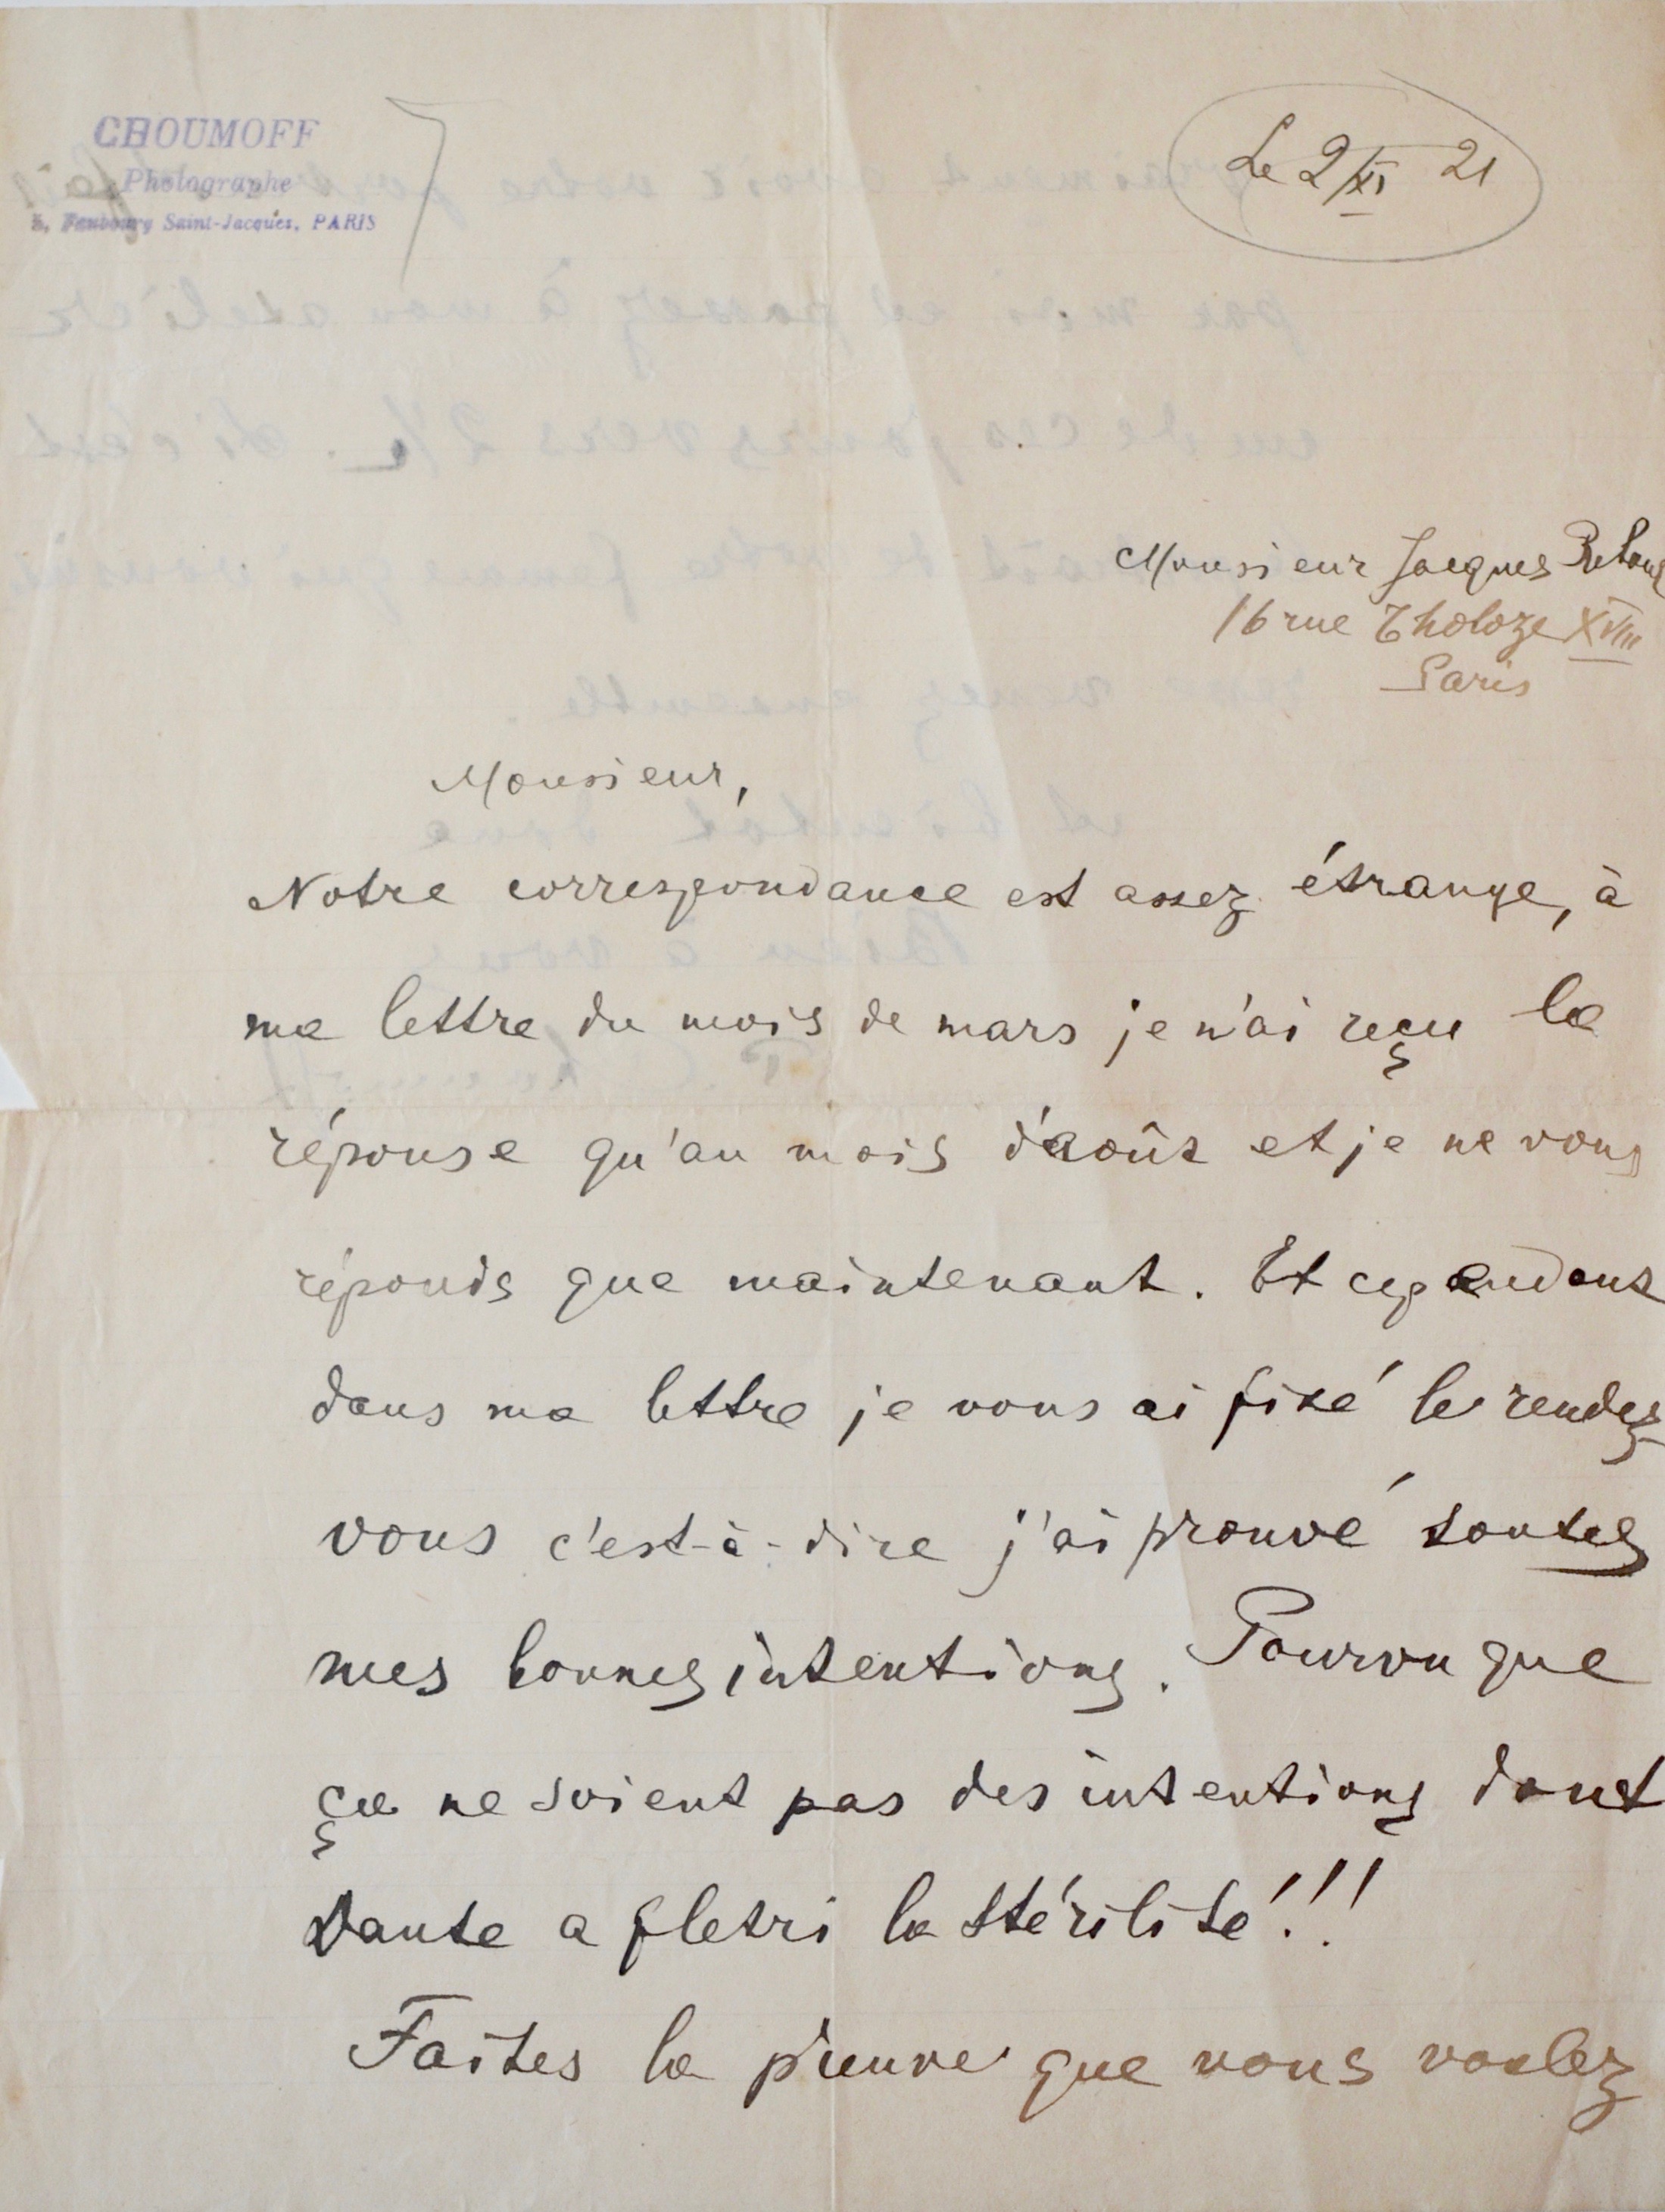 CHOUMOFF
Photographe
5, Faubourg Saint-Jacques, PARIS
Le 2/XI 21
Monsieur Jacques
16 rue Tholoze XVIII
Paris
Monsieur,
Notre correspondance est assez étrange, à
ma lettre du mois de mars je n'ai reçu la
réponse qu'au mois d'août et je ne vous
réponds que maintenant. Et cependant
dans ma lettre je vous ai fixé le rendez-
vous c'est-à-dire j'ai prouvé toutes
mes bonnes intentions. Pourvu que
ça ne soient pas des intentions dont
Dante a fletri la stérilité!!!
Faites la preuve que vous voulez